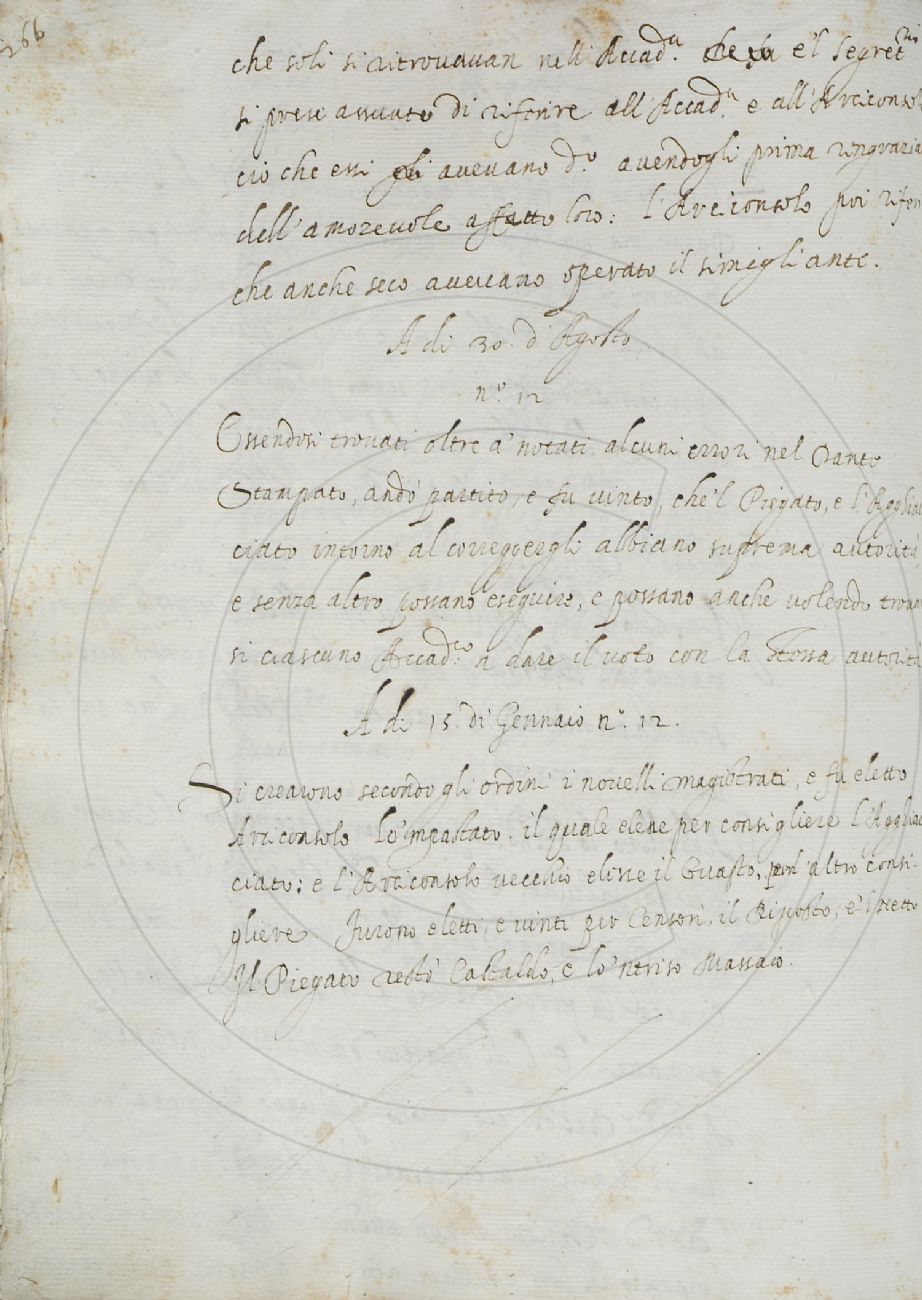 266
che soli si ritrovavan nell'Accad.a e'l Segret.rio
si prese assunto di riferire all'Accad.a e all'Arciconsol
ciò che essi gli avevano d.o avendogli prima ringrazia
dell'amorevole affetto loro: l'Arciconsolo poi riferi
che anche seco avevano operato il simigliante.
A di 30. d'Agosto
n.o 12
Essendosi trovati oltre a' notati alcuni errori nel Dante
Stampato, andò partito, e fu vinto, che'l Piegato, e l'Agghiac
ciato intorno al correggergli abbiano suprema autorità,
e senza altro possano eseguire, e possano anche volendo trovar
si ciascuno Accad.co a dare il voto con la stessa autorità
A di 15. di Gennaio n.o 12.
Si crearono secondo gli ordini i novelli magistrati, e fu eletto
Arciconsolo lo'mpastato. il quale elesse per consigliere l'Agghiac
ciato: e l'Arciconsolo vecchio elesse il Guasto, per altro consi-
gliere. Furono eletti, e vinti per Censori, il Riposto, e'l
Il Piegato restò Castaldo, e lo'ntriso Massaio.